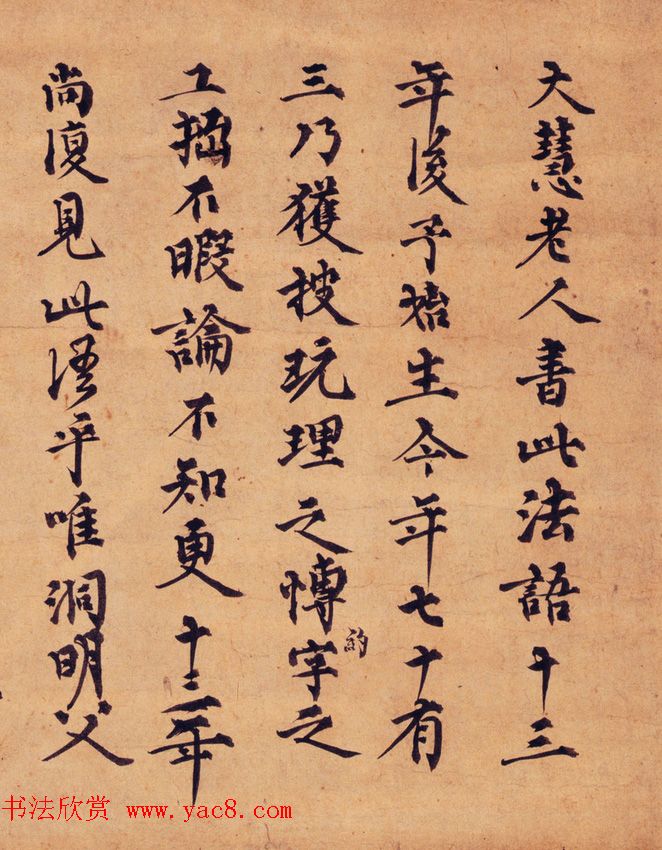 大慧老人書此法語十三
年後予始生今年七十有
三乃獲披玩理之愽約字之
工拙不暇論不知更十三年
尚復見此得乎唯洞明父
书法欣赏 www.yac8.com